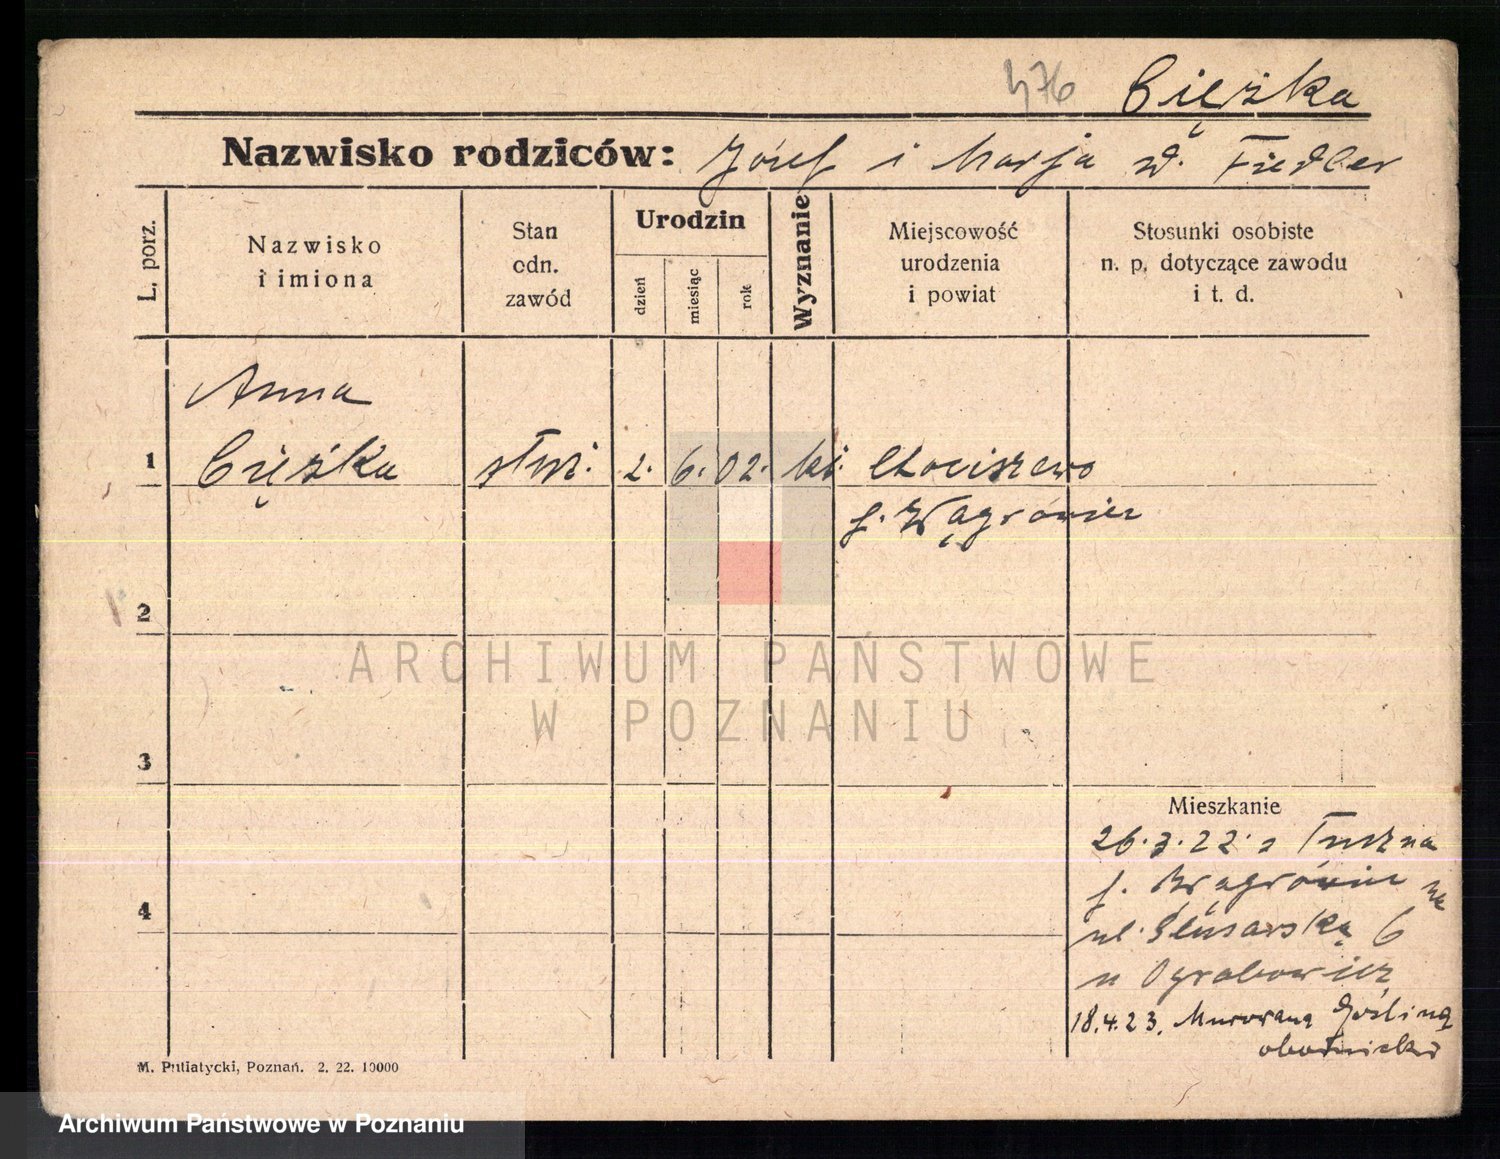 476 Ciężka
Nazwisko rodziców: Józef i Marja d. Fiedler
L. porz.
Nazwisko
i imiona
Stan
odn.
zawód
Urodzin
dzień
miesiąc
rok
Wyznanie
Miejscowość
urodzenia
i powiat
Stosunki osobiste
n. p. dotyczące zawodu
i t. d.
Anna
1 Ciężka służ. 2. 6. 02. kt. Chociszewo
p. Wągrowiec
2
ARCHIWUM PAŃSTWOWE
W POZNANIU
3
Mieszkanie
26.3.22. z
p. Wągrowiec na
4
ul. Ślusarska 6
u
18.4.23. Murowana Goślina
obornicki
M. Putiatycki, Poznań. 2. 22. 10000
Archiwum Państwowe w Poznaniu